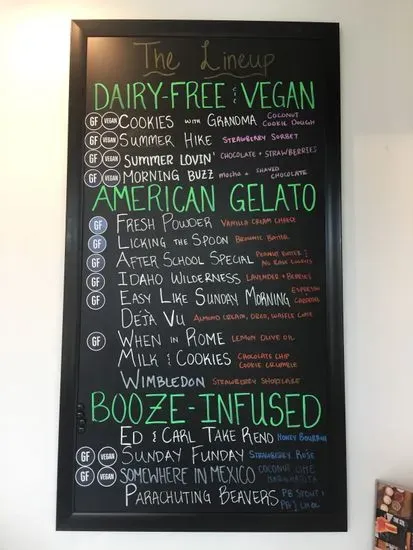 The Lineup
DAIRY-FREE & VEGAN
GF VEGAN COOKIES WITH GRANDMA COCONUT COOKIE DOUGH
GF VEGAN SUMMER HIKE STRAWBERRY SORBET
GF VEGAN SUMMER LOVIN' CHOCOLATE + STRAWBERRIES
GF VEGAN MORNING BUZZ mocha + SHAVED CHOCOLATE
AMERICAN GELATO
GF FRESH POWDER VANILLA CREAM CHEESE
GF LICKING THE SPOON BROWNIE BATTER
GF AFTER SCHOOL SPECIAL PEANUT BUTTER & NO BAKE COOKIES
GF IDAHO WILDERNESS LAVENDER + BERRIES
GF EASY LIKE SUNDAY MORNING ESPRESSO
DÉJÀ VU ALMOND CREAM, OREO, WAFFLE CONE
GF WHEN IN ROME LEMON OLIVE OIL
MILK & COOKIES CHOCOLATE CHIP COOKIE CRUMBLE
WIMBLEDON STRAWBERRY SHORTCAKE
BOOZE-INFUSED
ED & CARL TAKE RENO HONEY BOURBON
GF VEGAN SUNDAY FUNDAY STRAWBERRY ROSÉ
GF VEGAN SOMEWHERE IN MEXICO COCONUT LIME MARGARITA
PARACHUTING BEAVERS PB STOUT & PB